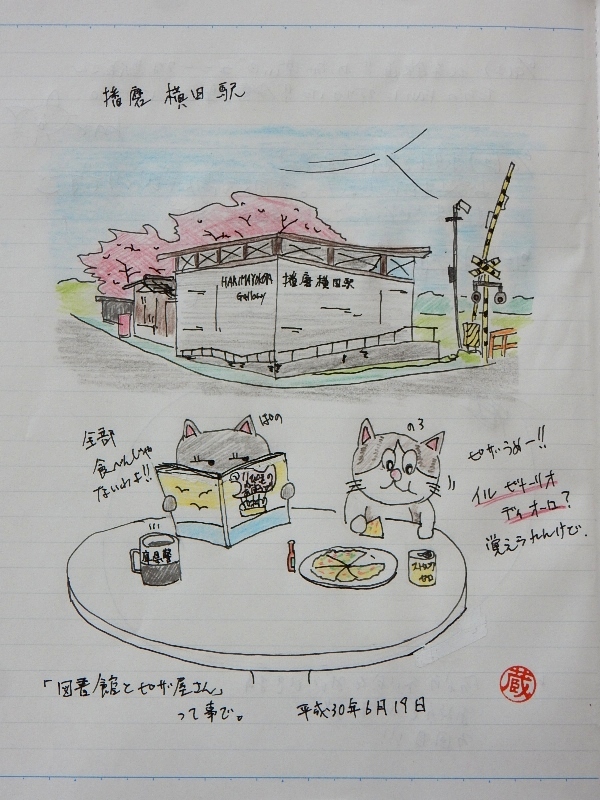 播磨 横田 駅
HARIMAYOKOTA
Gallery
播磨横田駅
全部
食べんじゃ
ないわよ!!
ぱの
のろ
ピザうめー!!
イル ゼナーリオ
ディ オーロ?
覚えられんけど、
「図書館とピザ屋さん」
って事で。
平成30年6月19日
蔵